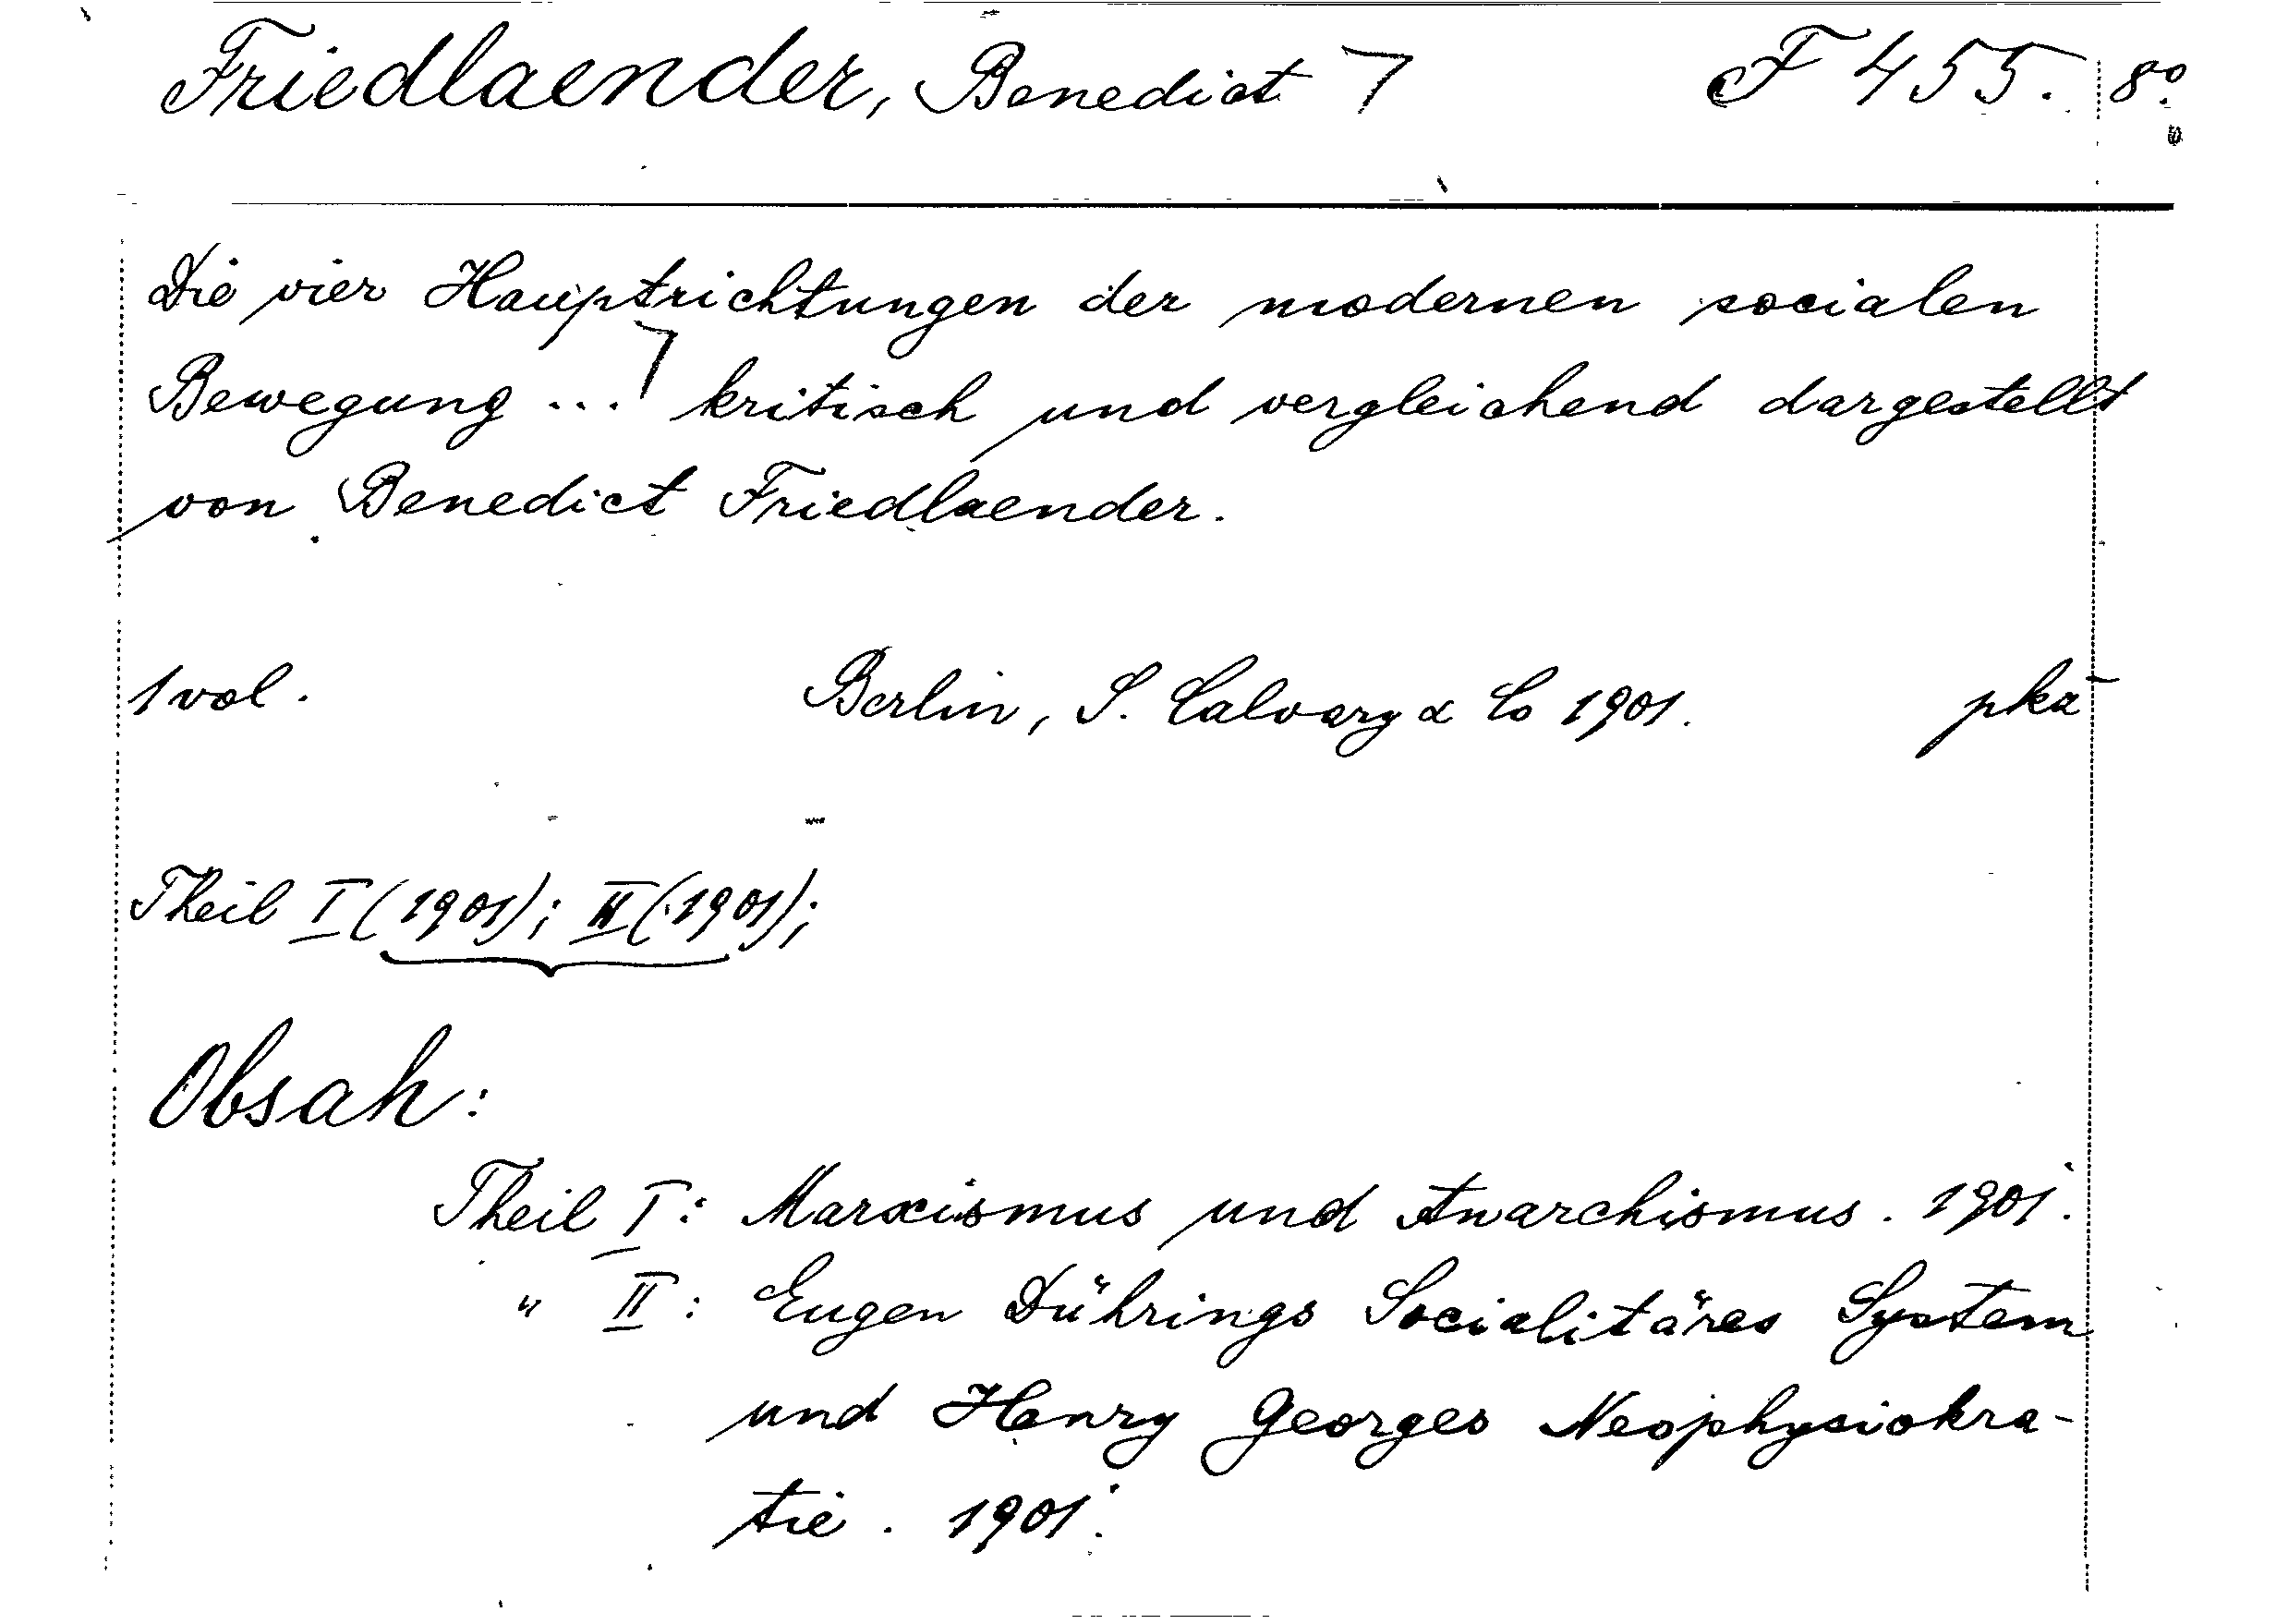 Friedlaender, Benedict ⌉ F 455. 8°.
Die vier Hauptrichtungen der modernen socialen
Bewegung ...⌉ kritisch und vergleichend dargestellt
von Benedict Friedlaender.
1 vol. Berlin, S. Calvary & Co 1901. pka
Theil I (1901); II (1901);
Obsah:
Theil I: Marxismus und Anarchismus. 1901.
" II: Eugen Dührings Socialitäres System
und Henry Georges Neophysiokra-
tie. 1901.